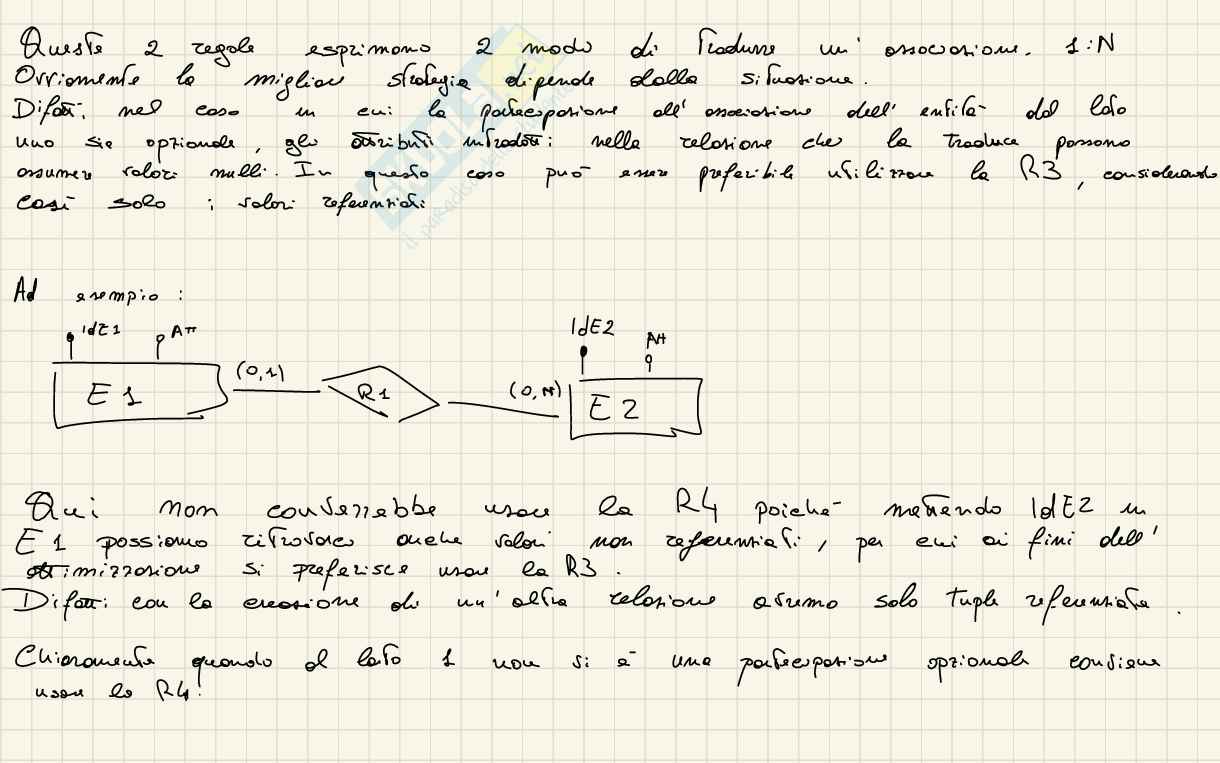 Queste 2 regole esprimono 2 modo di Tradurre un' associazione. 1:N
Ovviamente la miglior strategia dipende dalla situazione.
Difatti, nel caso in cui la partecipazione all' associazione dell' entità dal lato
uno sia opzionale, gli attributi introdotti nella relazione che la traduce possono
assumere valori nulli. In questo caso può essere preferibile utilizzare la R3, considerando
così solo i valori referenziati
Ad esempio :
IdE1 ATT
IdE2 Att
E1 (0,1) R1 (0,N) E2
Qui non converrebbe usare la R4 poiché mettendo IdE2 in
E1 possiamo ritrovare anche valori non referenziati, per cui ai fini dell'
ottimizzazione si preferisce usare la R3.
Difatti con la creazione di un'altra relazione avremo solo tuple referenziate.
Chiaramente quando al lato 1 non si è una partecipazione opzionale conviene
usare la R4!